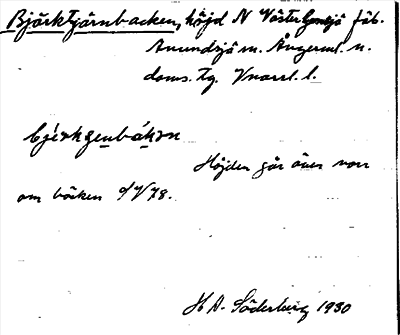 Björktjärnbacken, höjd N Västerlandsjö fäb.
Anundsjö sn. Ångerml. n.
doms. tg. Vnorrl. l.
bjérkgenbákɔn
Höjden går över vnr
om bäcken
H A. Söderberg 1930